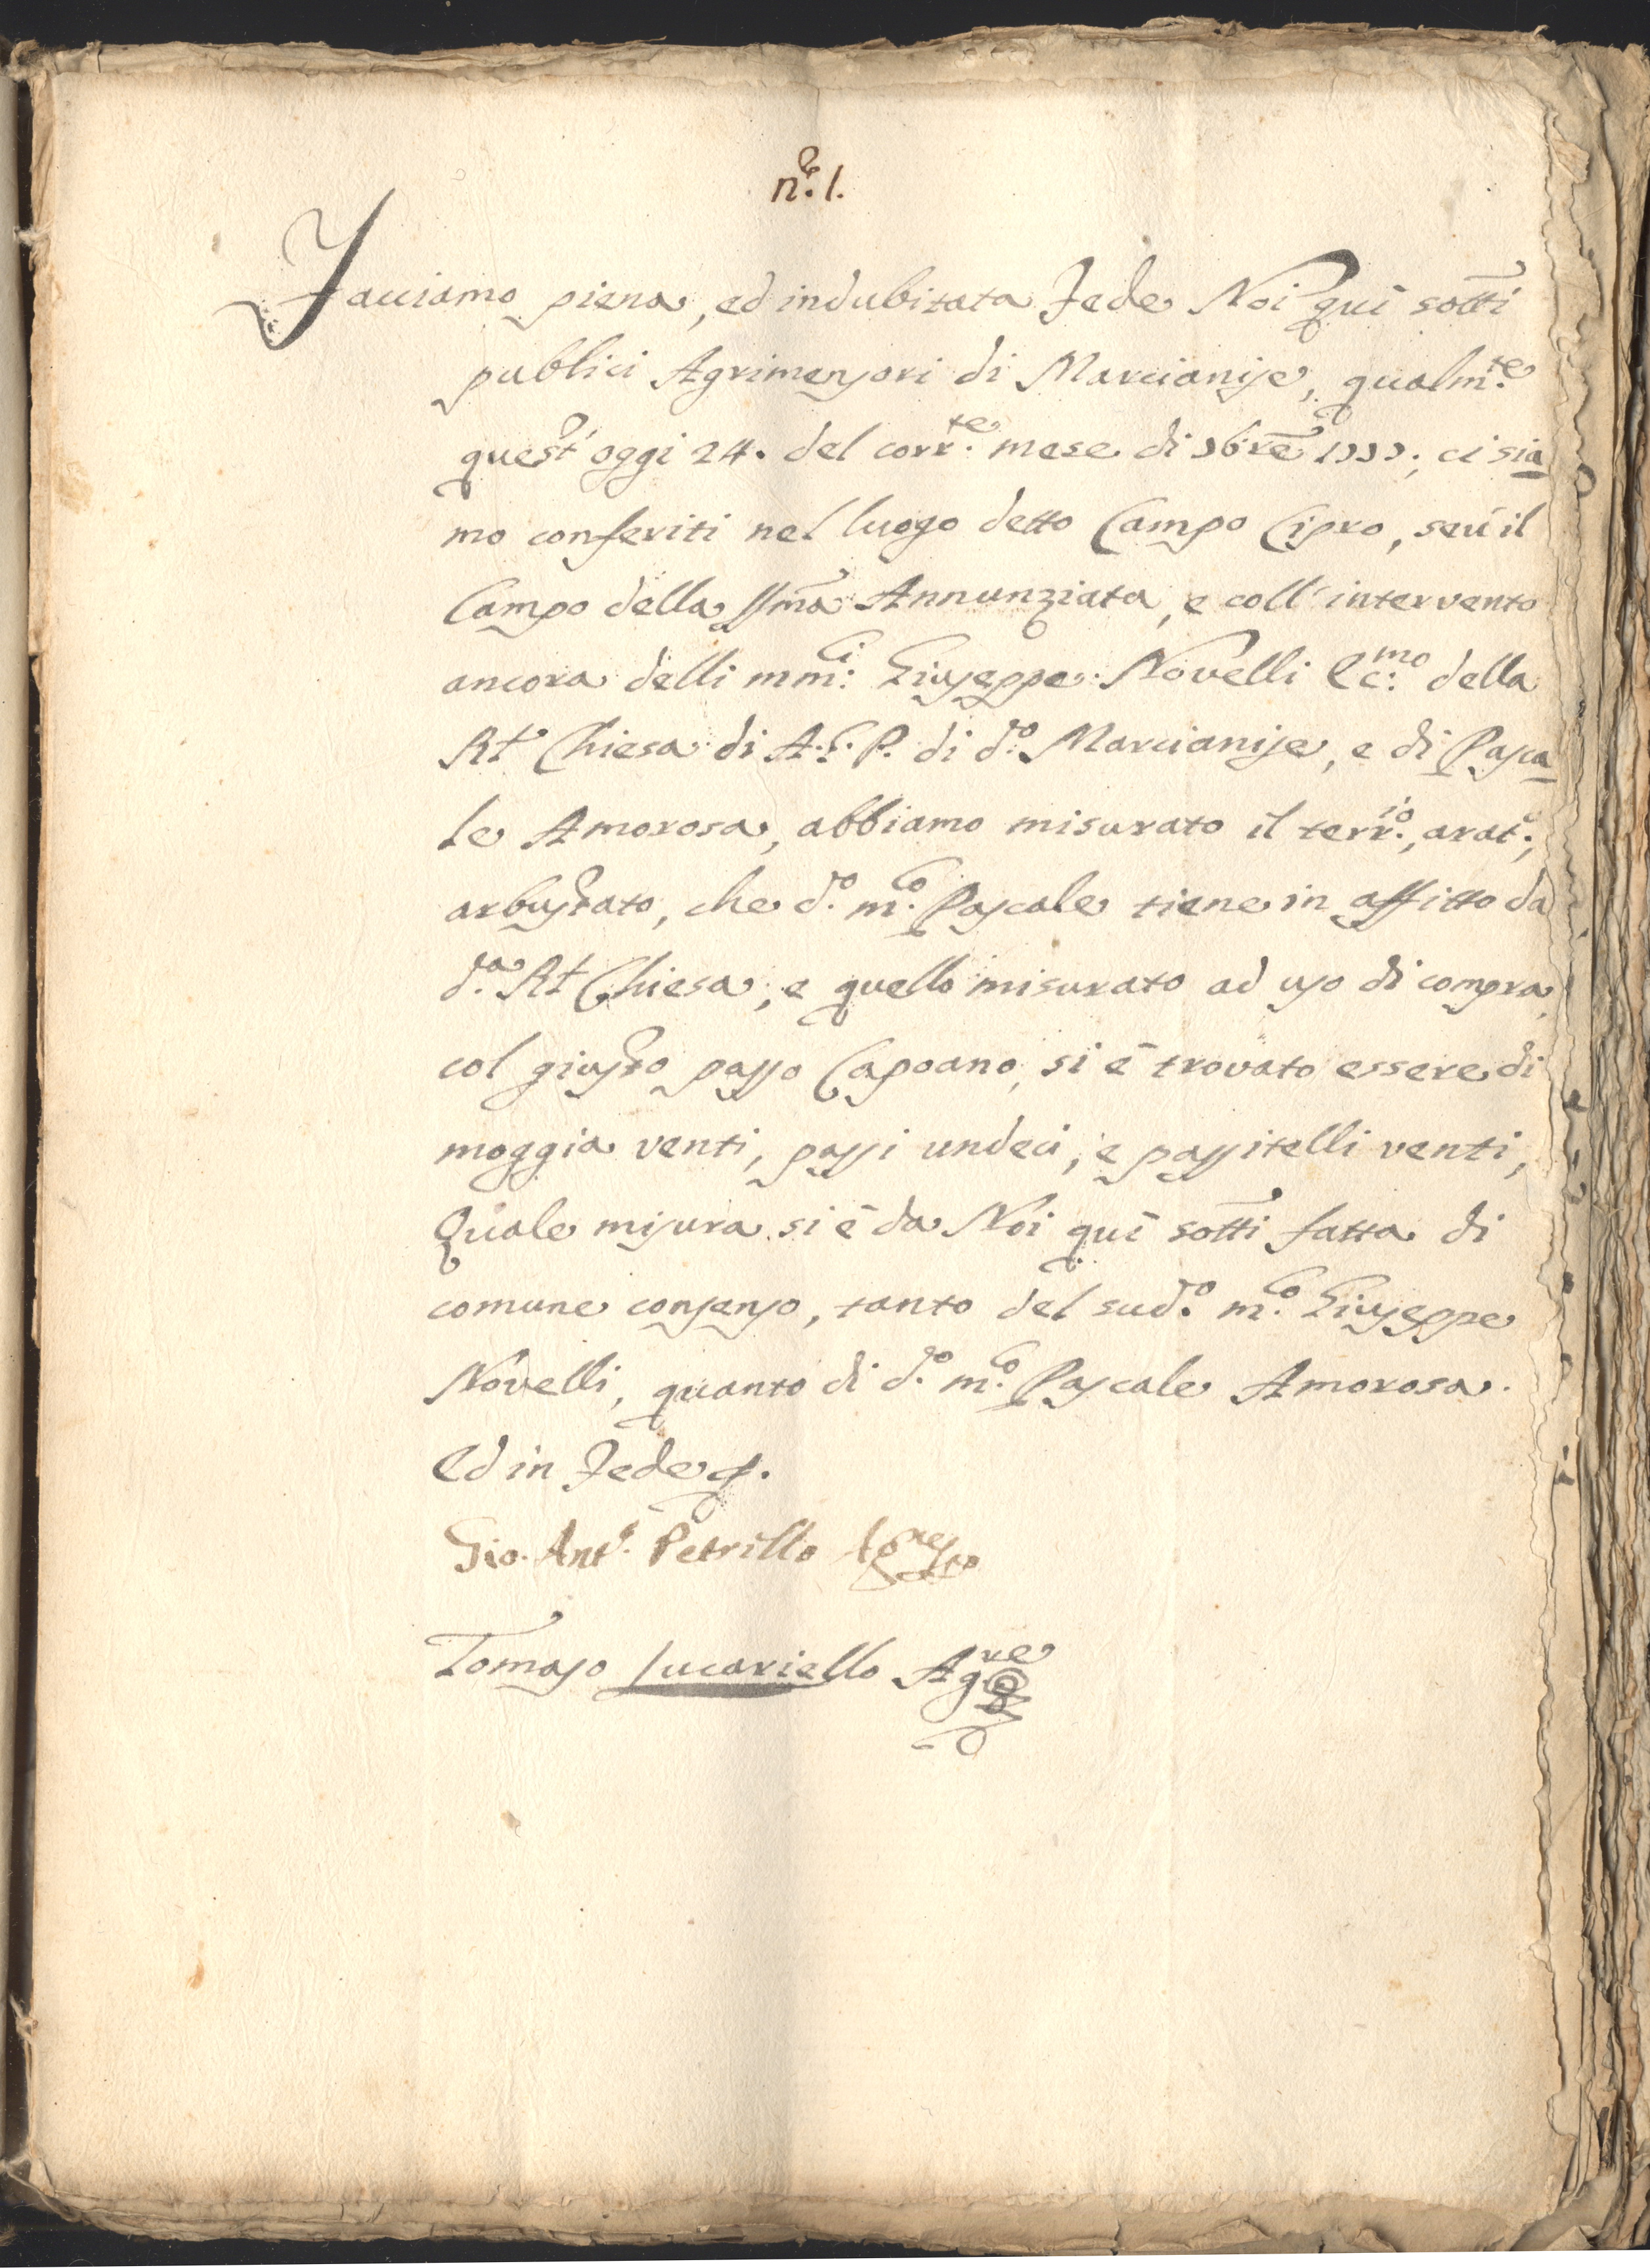 n.º 1.
Facciamo piena, ed indubitata Fede Noi quì sotti
publici Agrimensori di Marcianise, qualm.te
quest' oggi 24. del corr.te mese di 7bre 1777; ci sia
mo conferiti nel luogo detto Campo Cipro, seu il
Campo della SSma Annunziata, e coll' intervento
ancora delli mm.ci Giuseppe Novelli Ec.mo della
Rt Chiesa di A. G. P. di d.o Marcianise, e di Pasca
le Amorosa, abbiamo misurato il terr.io, arat.o,
arbustato, che d.o m.co Pascale tiene in affitto da
d.a Rt Chiesa; e quello misurato ad uso di compra,
col giusto passo Capoano, si è trovato essere di
moggia venti, passi undeci, e passitelli venti,
Quale misura si è da Noi quì sotti fatta di
comune consenso, tanto del sud.o m.co Giuseppe
Novelli, quanto di d.o m.co Pascale Amorosa.
Ed in Fede
Gio. Ant.o Petrillo Ag.re
Tomaso Lucariello Ag.re